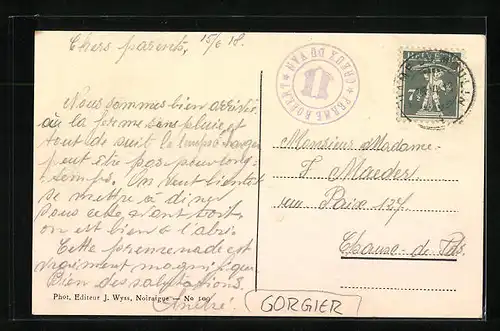 Chers parents, 15/6 18.
Nous sommes bien arrivés
à la ferme sans pluie et
tout de suit le temps
peut être pas pour long-
temps. On veut bientot
se mettre a diner
sous cette
on est bien à l'abri.
Cette promenade est
vraiment magnifique
Bien des salutations.
André.
Phot. Editeur J. Wyss, Noiraigue — No 109
GORGIER
FERME ROBERT
CREUX DU VAN
11
HELVETIA
7½
Monsieur Madame
F. Maeder
rue Paix 127
Chaux-de-Fds.